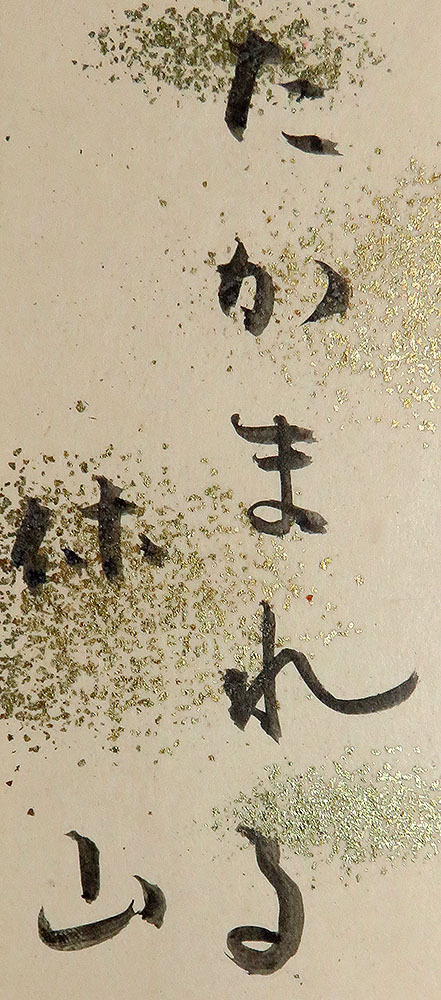 たかまれる
休山